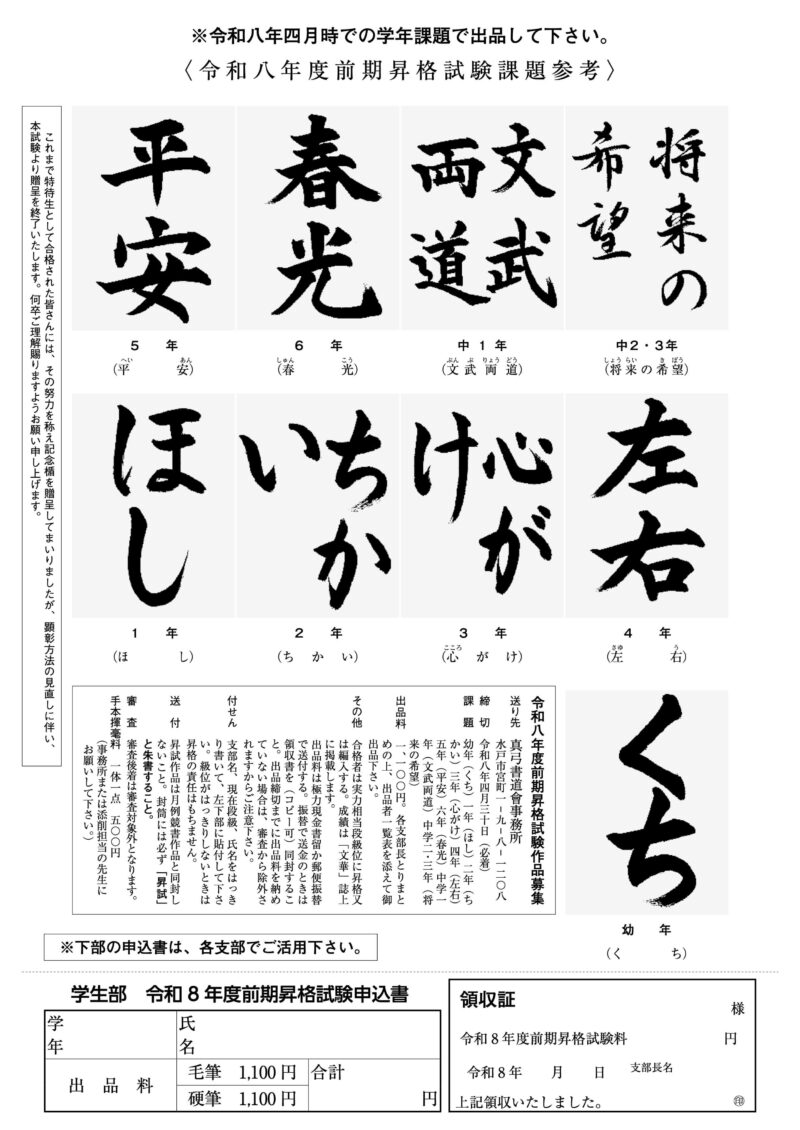 ※令和八年四月時での学年課題で出品して下さい。
〈令和八年度前期昇格試験課題参考〉
将来の
希望
中2・3年
しょうらい き ぼう
（将来の希望）
文武
両道
中 1 年
ぶん ぶ りょう どう
（文武両道）
春光
6 年
しゅん こう
（春 光）
平安
5 年
へい あん
（平 安）
これまで特待生として合格された皆さんには、その努力を称え記念楯を贈呈してまいりましたが、顕彰方法の見直しに伴い、
本試験より贈呈を終了いたします。何卒ご理解賜りますようお願い申し上げます。
左右
4 年
さゆ う
（左 右）
心が
け
3 年
こころ
（心 が け）
ちか
い
2 年
（ち か い）
ほし
1 年
（ほ し）
くち
幼 年
（く ち）
令和八年度前期昇格試験作品募集
送り先 真弓書道會事務所
水戸市宮町一-九-八-一二〇八
締切 令和八年四月三十日（必着）
課題 幼年（くち）一年（ほし）二年（ち
かい）三年（心がけ）四年（左右）
五年（平安）六年（春光）中学一
年（文武両道）中学二・三年（将
来の希望）
出品料 一、一〇〇円。各支部長とりまと
めの上、出品者一覧表を添えて御
出品下さい。
その他 合格者は実力相当段級位に昇格又
は編入する。成績は「文華」誌上
に掲載します。
出品料は極力現金書留か郵便振替
で送付する。振替で送金のときは
領収書を（コピー可）同封するこ
と。出品締切までに出品料を納め
ていない場合は、審査から除外さ
れますからご注意下さい。
付せん 支部名、現在段級、氏名をはっき
り書いて、左下部に貼付して下さ
い。級位がはっきりしないときは
昇格の責任はもちません。
送付 昇試作品は月例競書作品と同封し
ないこと。封筒には必ず「昇試」
と朱書すること。
審査 審査後着は審査対象外となります。
手本揮毫料 一体一点 五〇〇円
（事務所または添削担当の先生に
お願いして下さい。）
※下部の申込書は、各支部でご活用下さい。
学生部 令和8年度前期昇格試験申込書
学年
氏名
出品料
毛筆 1,100円
硬筆 1,100円
合計
円
領収証
様
令和8年度前期昇格試験料 円
令和8年 月 日 支部長名
上記領収いたしました。 ㊞